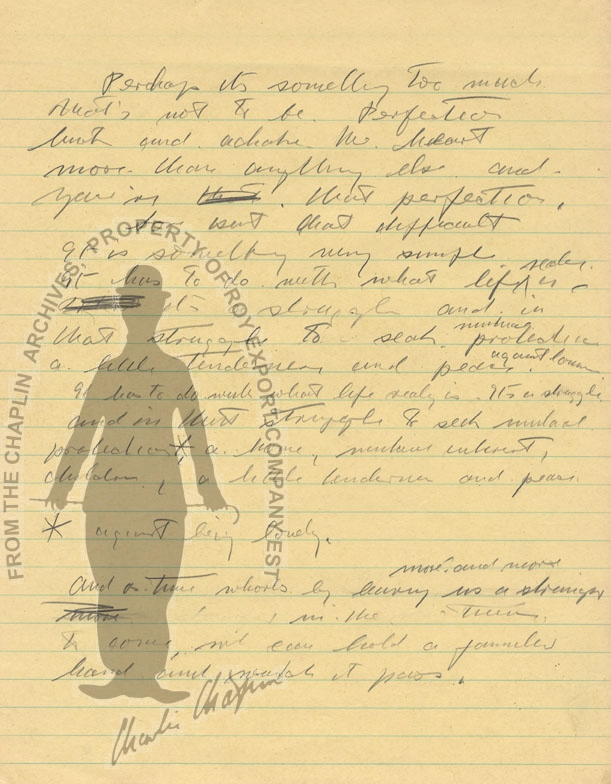 Perhaps its something too much
that's not to be. Perfection
and the heart
more than anything else and
that perfection.
isnt that difficult
It is something very simple
It has to do with what life really is –
its struggle and in
that struggle to seek mutual protection
a little tenderness and peace. against
It has to do with what life really is. Its a struggle
and in that struggle to seek mutual
protection* a home, mutual interest,
children, a little tenderness and peace.
* against being lonely.
And as time whirls by leaving us more and more a stranger
more in the
to come, we can hold a familiar
hand and watch it pass.
FROM THE CHAPLIN ARCHIVES, PROPERTY OF ROY EXPORT COMPANY EST
Charlie Chaplin